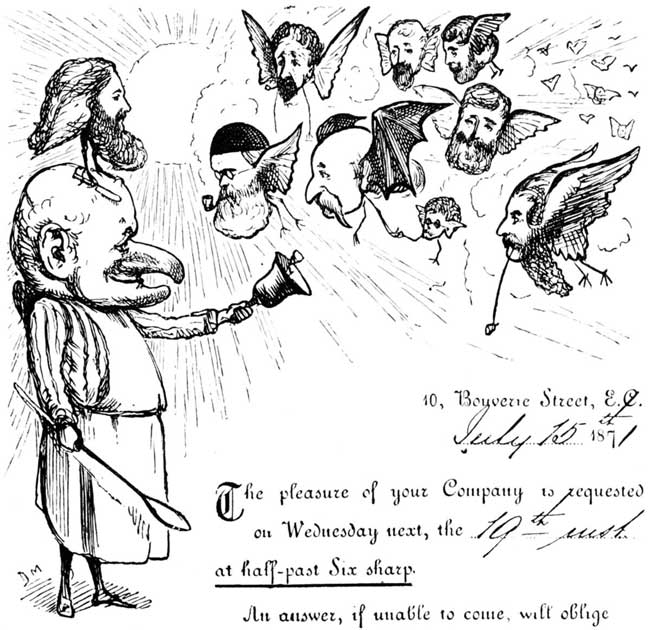 10, Bouverie Street, E.C.
July 15th 1871
The pleasure of your Company is requested
on Wednesday next, the 19th inst.
at half-past Six sharp.
An answer, if unable to come, will oblige
DM